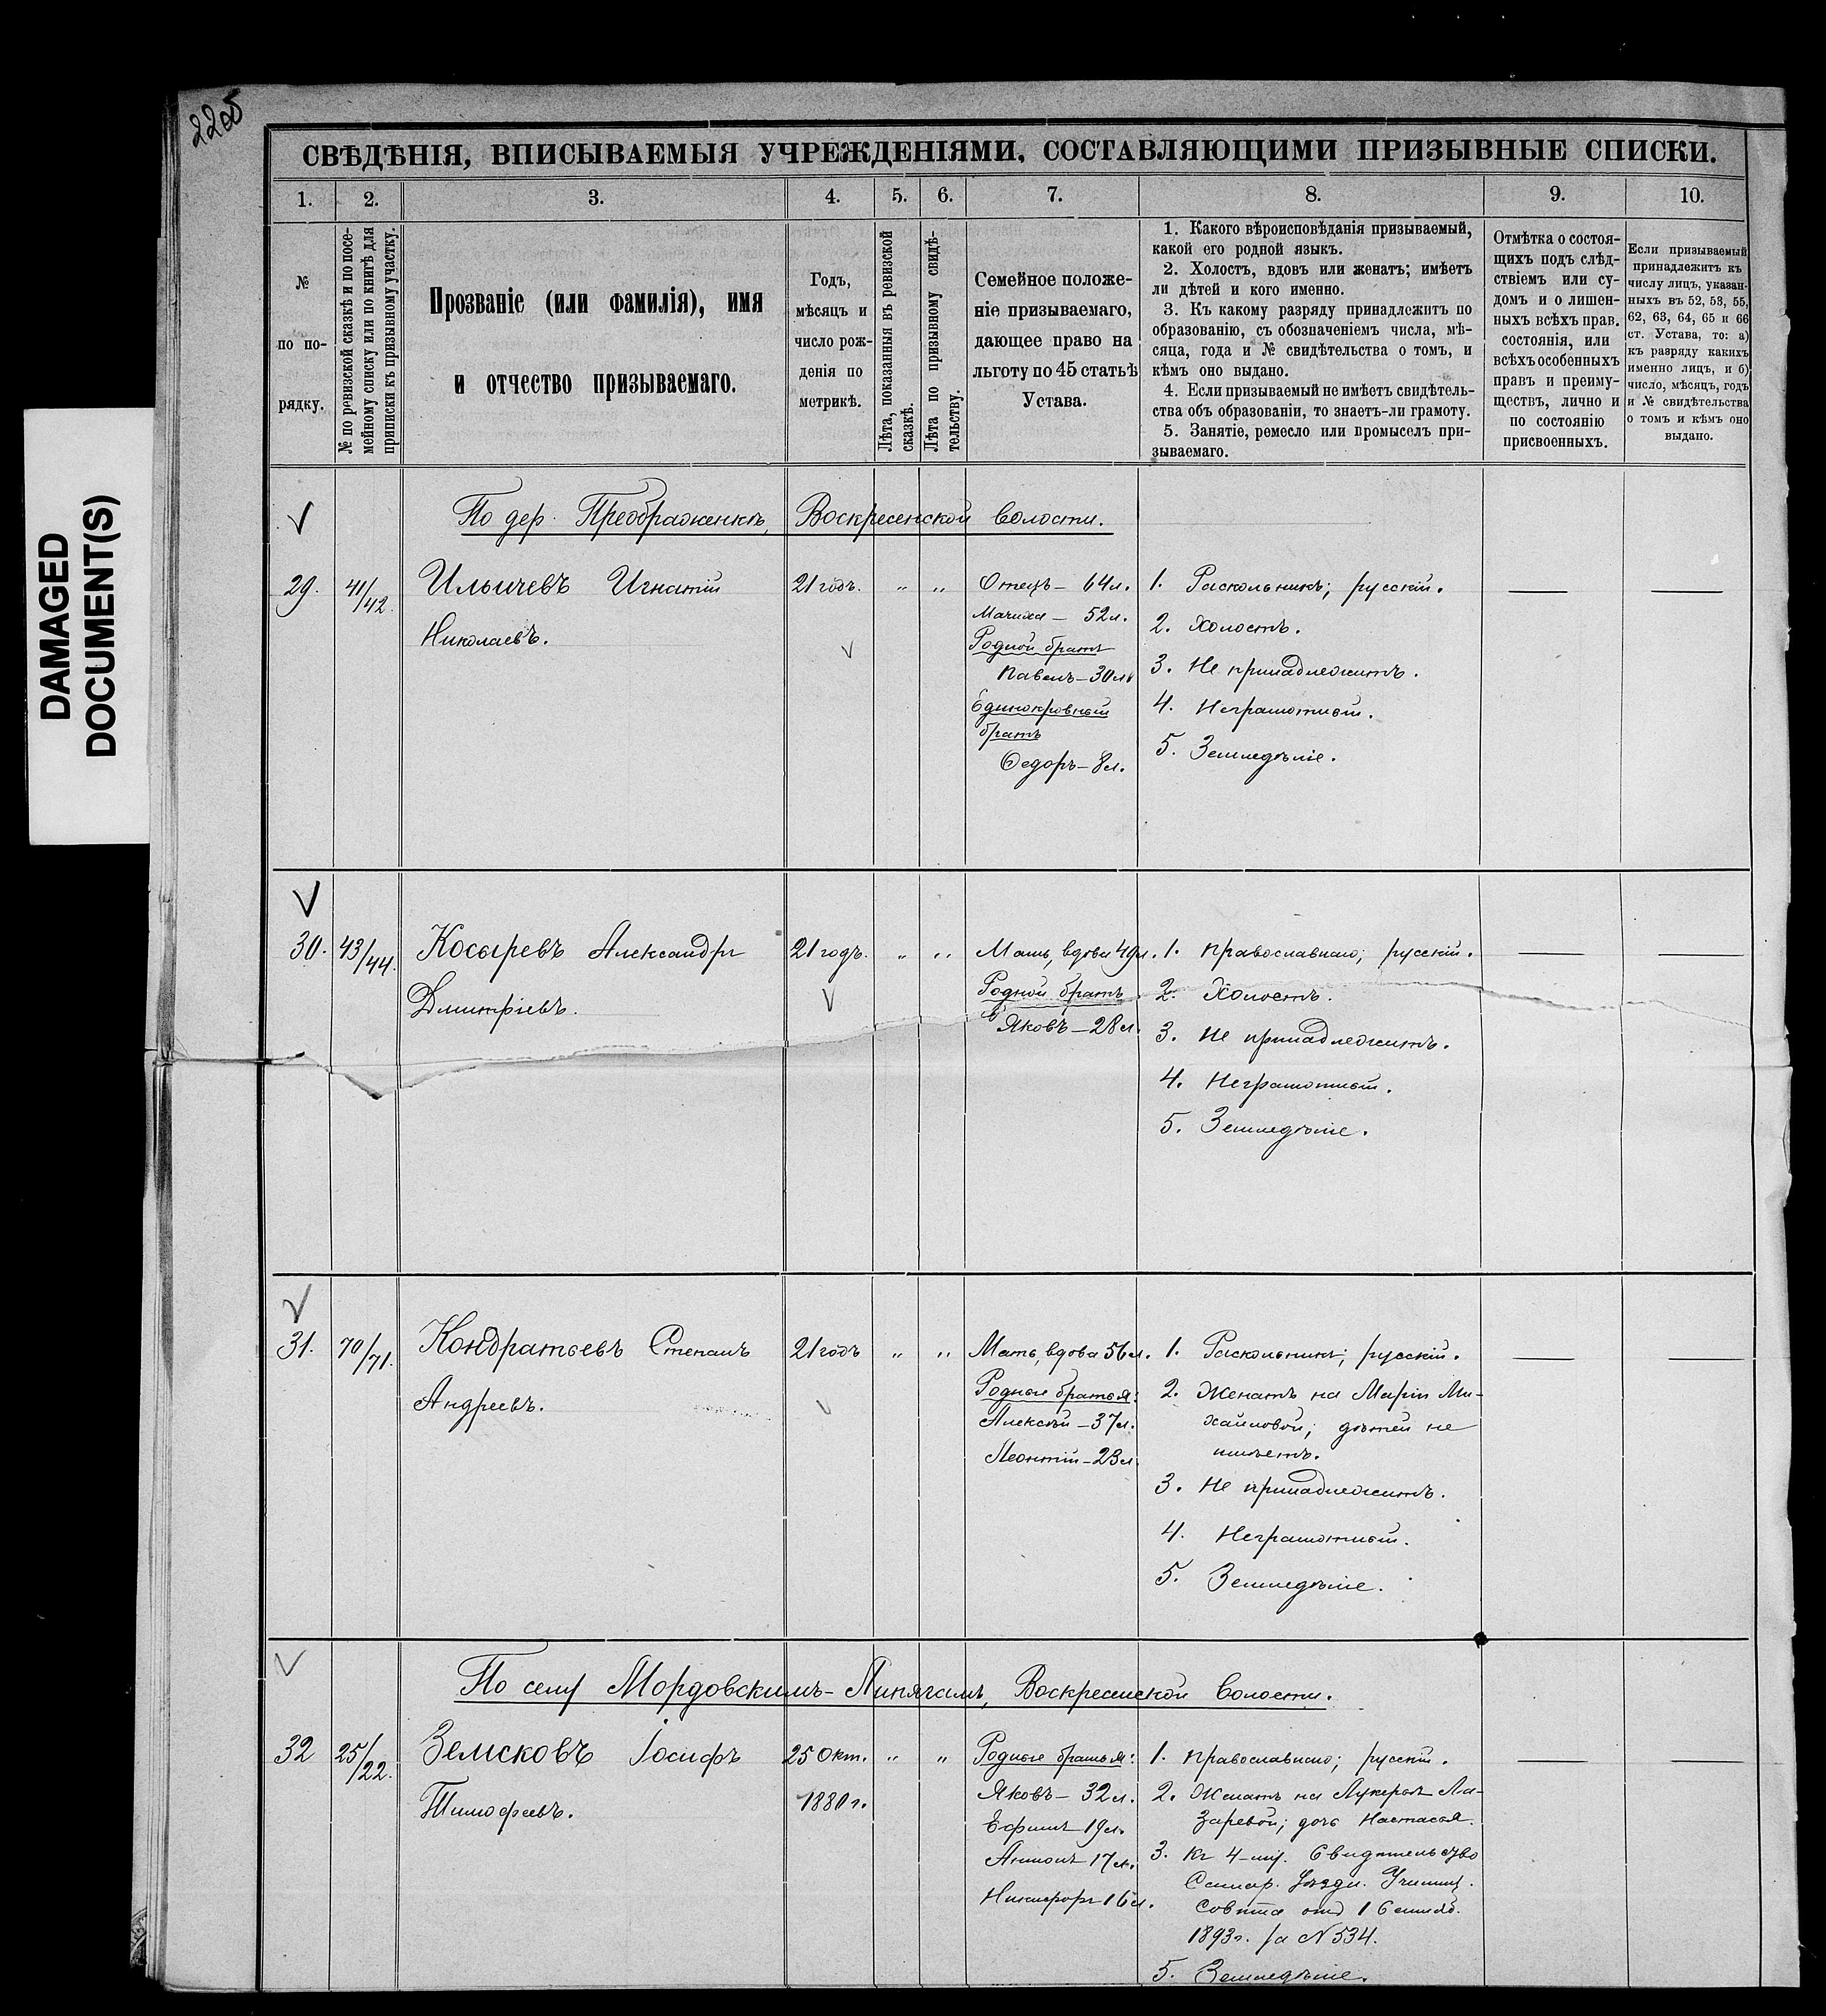 2205
DAMAGED
DOCUMENT(S)
СВѢДѢНІЯ, ВПИСЫВАЕМЫЯ УЧРЕЖДЕНІЯМИ, СОСТАВЛЯЮЩИМИ ПРИЗЫВНЫЕ СПИСКИ.
1. 2. 3. 4. 5. 6. 7. 8. 9. 10.
№
по по-
рядку.
№ по ревизской сказкѣ и по посе-
мейному списку или по книгѣ для
приписки къ призывному участку.
Прозваніе (или фамилія), имя
и отчество призываемаго.
Годъ,
мѣсяцъ и
число рож-
денія по
метрикѣ.
Лѣта, показанныя въ ревизской
сказкѣ.
Лѣта по призывному свидѣ-
тельству.
Семейное положе-
ніе призываемаго,
дающее право на
льготу по 45 статьѣ
Устава.
1. Какого вѣроисповѣданія призываемый,
какой его родной языкъ.
2. Холостъ, вдовъ или женатъ; имѣетъ
ли дѣтей и кого именно.
3. Къ какому разряду принадлежитъ по
образованію, съ обозначеніемъ числа, мѣ-
сяца, года и № свидѣтельства о томъ, и
кѣмъ оно выдано.
4. Если призываемый не имѣетъ свидѣтель-
ства объ образованіи, то знаетъ-ли грамоту.
5. Занятіе, ремесло или промыселъ при-
зываемаго.
Отмѣтка о состоя-
щихъ подъ слѣд-
ствіемъ или су-
домъ и о лишен-
ныхъ всѣхъ прав.
состоянія, или
всѣхъ особенныхъ
правъ и преиму-
ществъ, лично и
по состоянію
присвоенныхъ.
Если призываемый
принадлежитъ къ
числу лицъ, указан-
ныхъ въ 52, 53, 55,
62, 63, 64, 65 и 66
ст. Устава, то: а)
къ разряду какихъ
именно лицъ, и б)
число, мѣсяцъ, годъ
и № свидѣтельства
о томъ и кѣмъ оно
выдано.
По дер. Преображенкѣ, Воскресенской волости.
29. 41/42. Ильичевъ Игнатій
Николаевъ.
21 годъ. " "
Отецъ – 64 л.
Мачиха – 52 л.
Родной братъ
Павелъ – 30 л.
Единокровный
братъ
Ѳедоръ – 8 л.
1. Раскольникъ; русскій.
2. Холостъ.
3. Не принадлежитъ.
4. Неграмотный.
5. Земледѣліе.
30. 43/44. Косыревъ Александръ
Дмитріевъ.
21 годъ. " "
Мать, вдова 49 л.
Родной братъ
Яковъ – 28 л.
1. Православнаго; русскій.
2. Холостъ.
3. Не принадлежитъ.
4. Неграмотный.
5. Земледѣліе.
31. 70/71. Кондратьевъ Степанъ
Андреевъ.
21 годъ " "
Мать, вдова 56 л.
Родные братья:
Алексѣй – 37 л.
Леонтій – 23 л.
1. Раскольникъ; русскій.
2. Женатъ на Маріи Ми-
хайловой; дѣтей не
имѣетъ.
3. Не принадлежитъ.
4. Неграмотный.
5. Земледѣліе.
По селу Мордовскимъ-Липягамъ, Воскресенской волости.
32 25/22. Земсковъ Іосифъ
Тимофеевъ.
25 Окт.
1880 г.
" "
Родные братья:
Яковъ – 32 л.
Ефимъ 19 л.
Антонъ 17 л.
Никифоръ 16 л.
1. Православнаго; русскій.
2. Женатъ на Лукерьѣ Ла-
заревой; дочь Настасья.
3. Къ 4-му. Свидѣтельство
Самар. Уѣздн. Училищ.
Совѣта отъ 1 Сентяб.
1893 г. за № 534.
5. Земледѣліе.